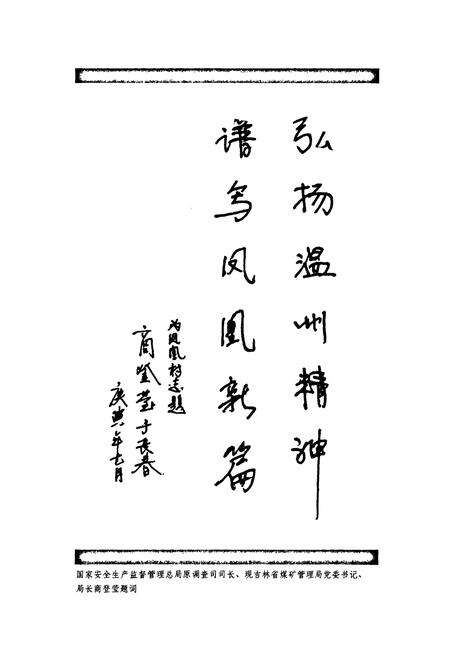 弘扬温州精神
谱写凤凰新篇
为凤凰村志题
商登莹于长春
庚寅年七月
国家安全生产监督管理总局原调查司司长、现吉林省煤矿管理局党委书记、
局长商登莹题词